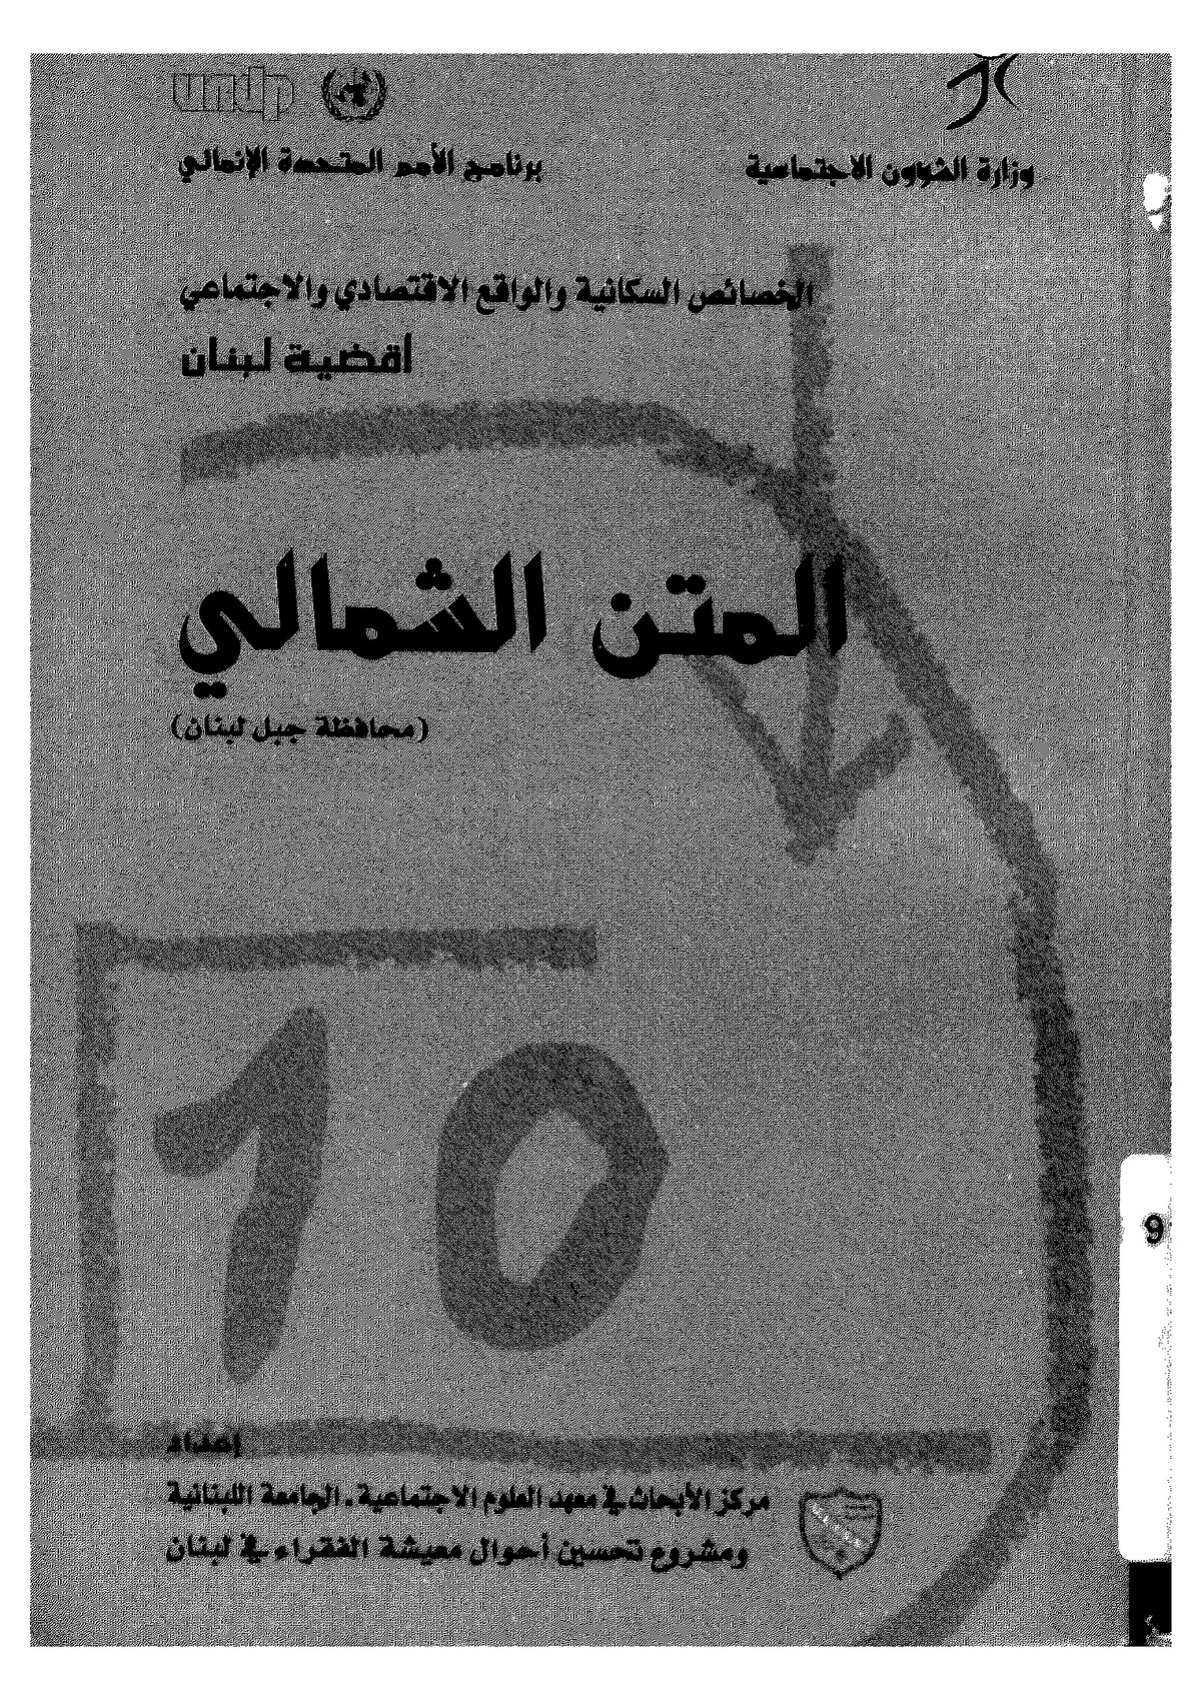 undp
وزارة الشؤون الاجتماعية
برنامج الأمم المتحدة الإنمائي
الخصائص السكانية والواقع الاقتصادي والاجتماعي
أقضية لبنان
المتن الشمالي
(محافظة جبل لبنان)
10
9
إعداد
مركز الأبحاث في معهد العلوم الاجتماعية - الجامعة اللبنانية
ومشروع تحسين أحوال معيشة الفقراء في لبنان